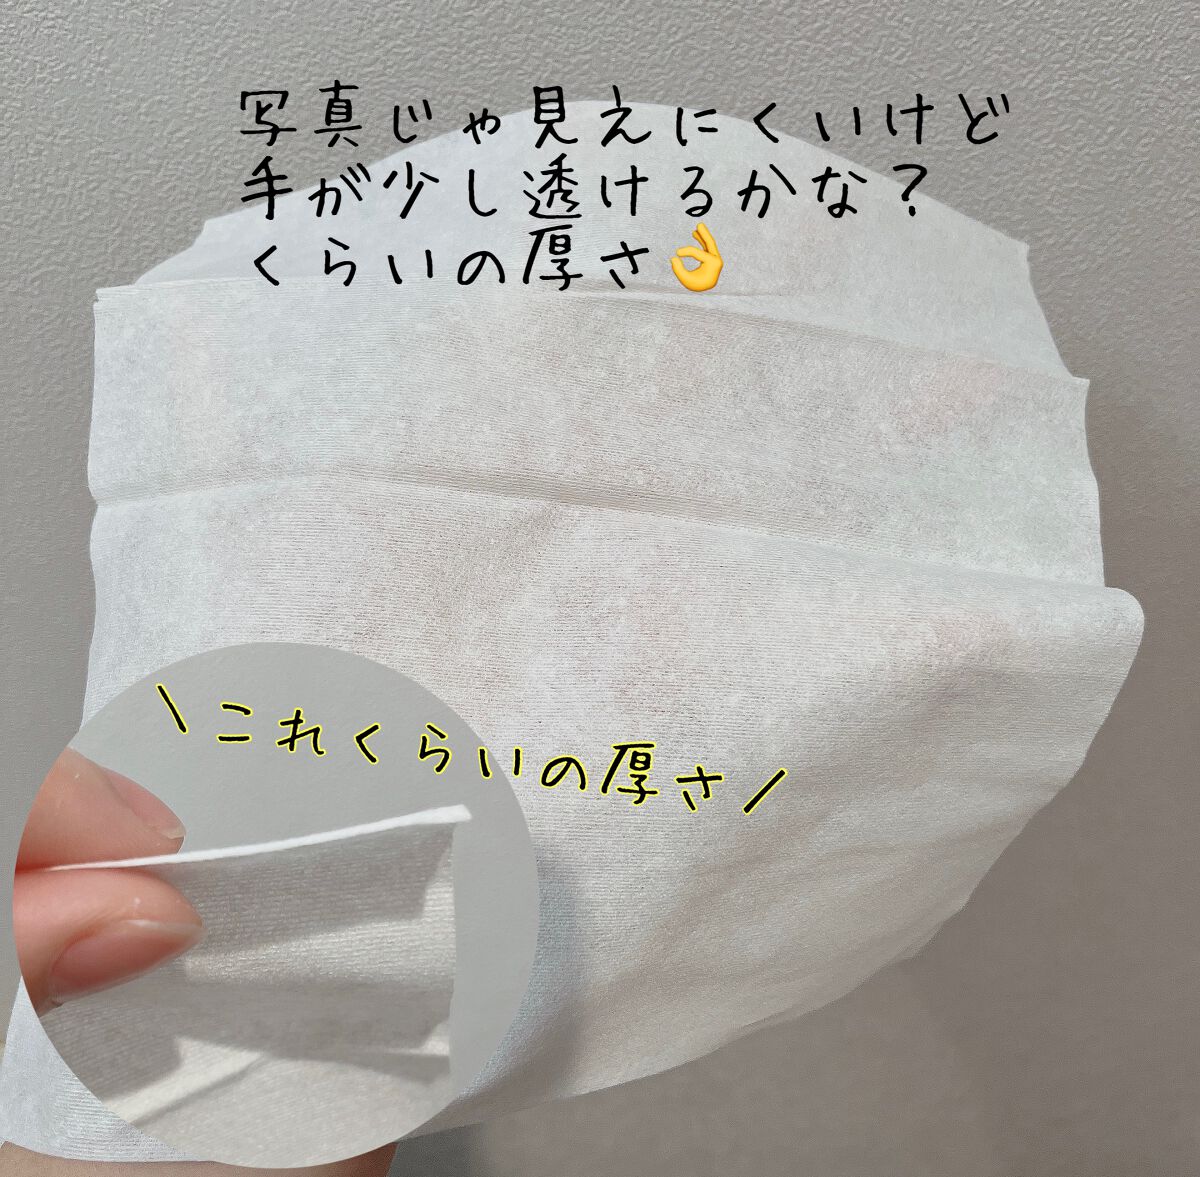 写真じゃ見えにくいけど
手が少し透けるかな？
くらいの厚さ👌
\これくらいの厚さ/